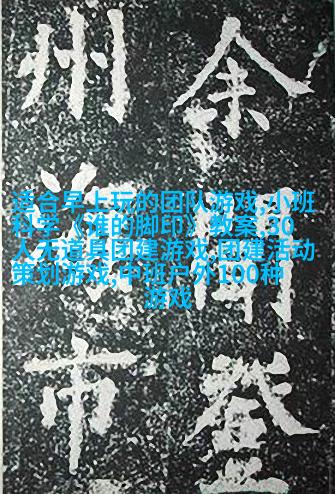 余聞登
州海市
适合早上玩的团队游戏,小班
科学《谁的脚印》教案,30
人无道具团建游戏,团建活动
策划游戏,中班户外100种
游戏